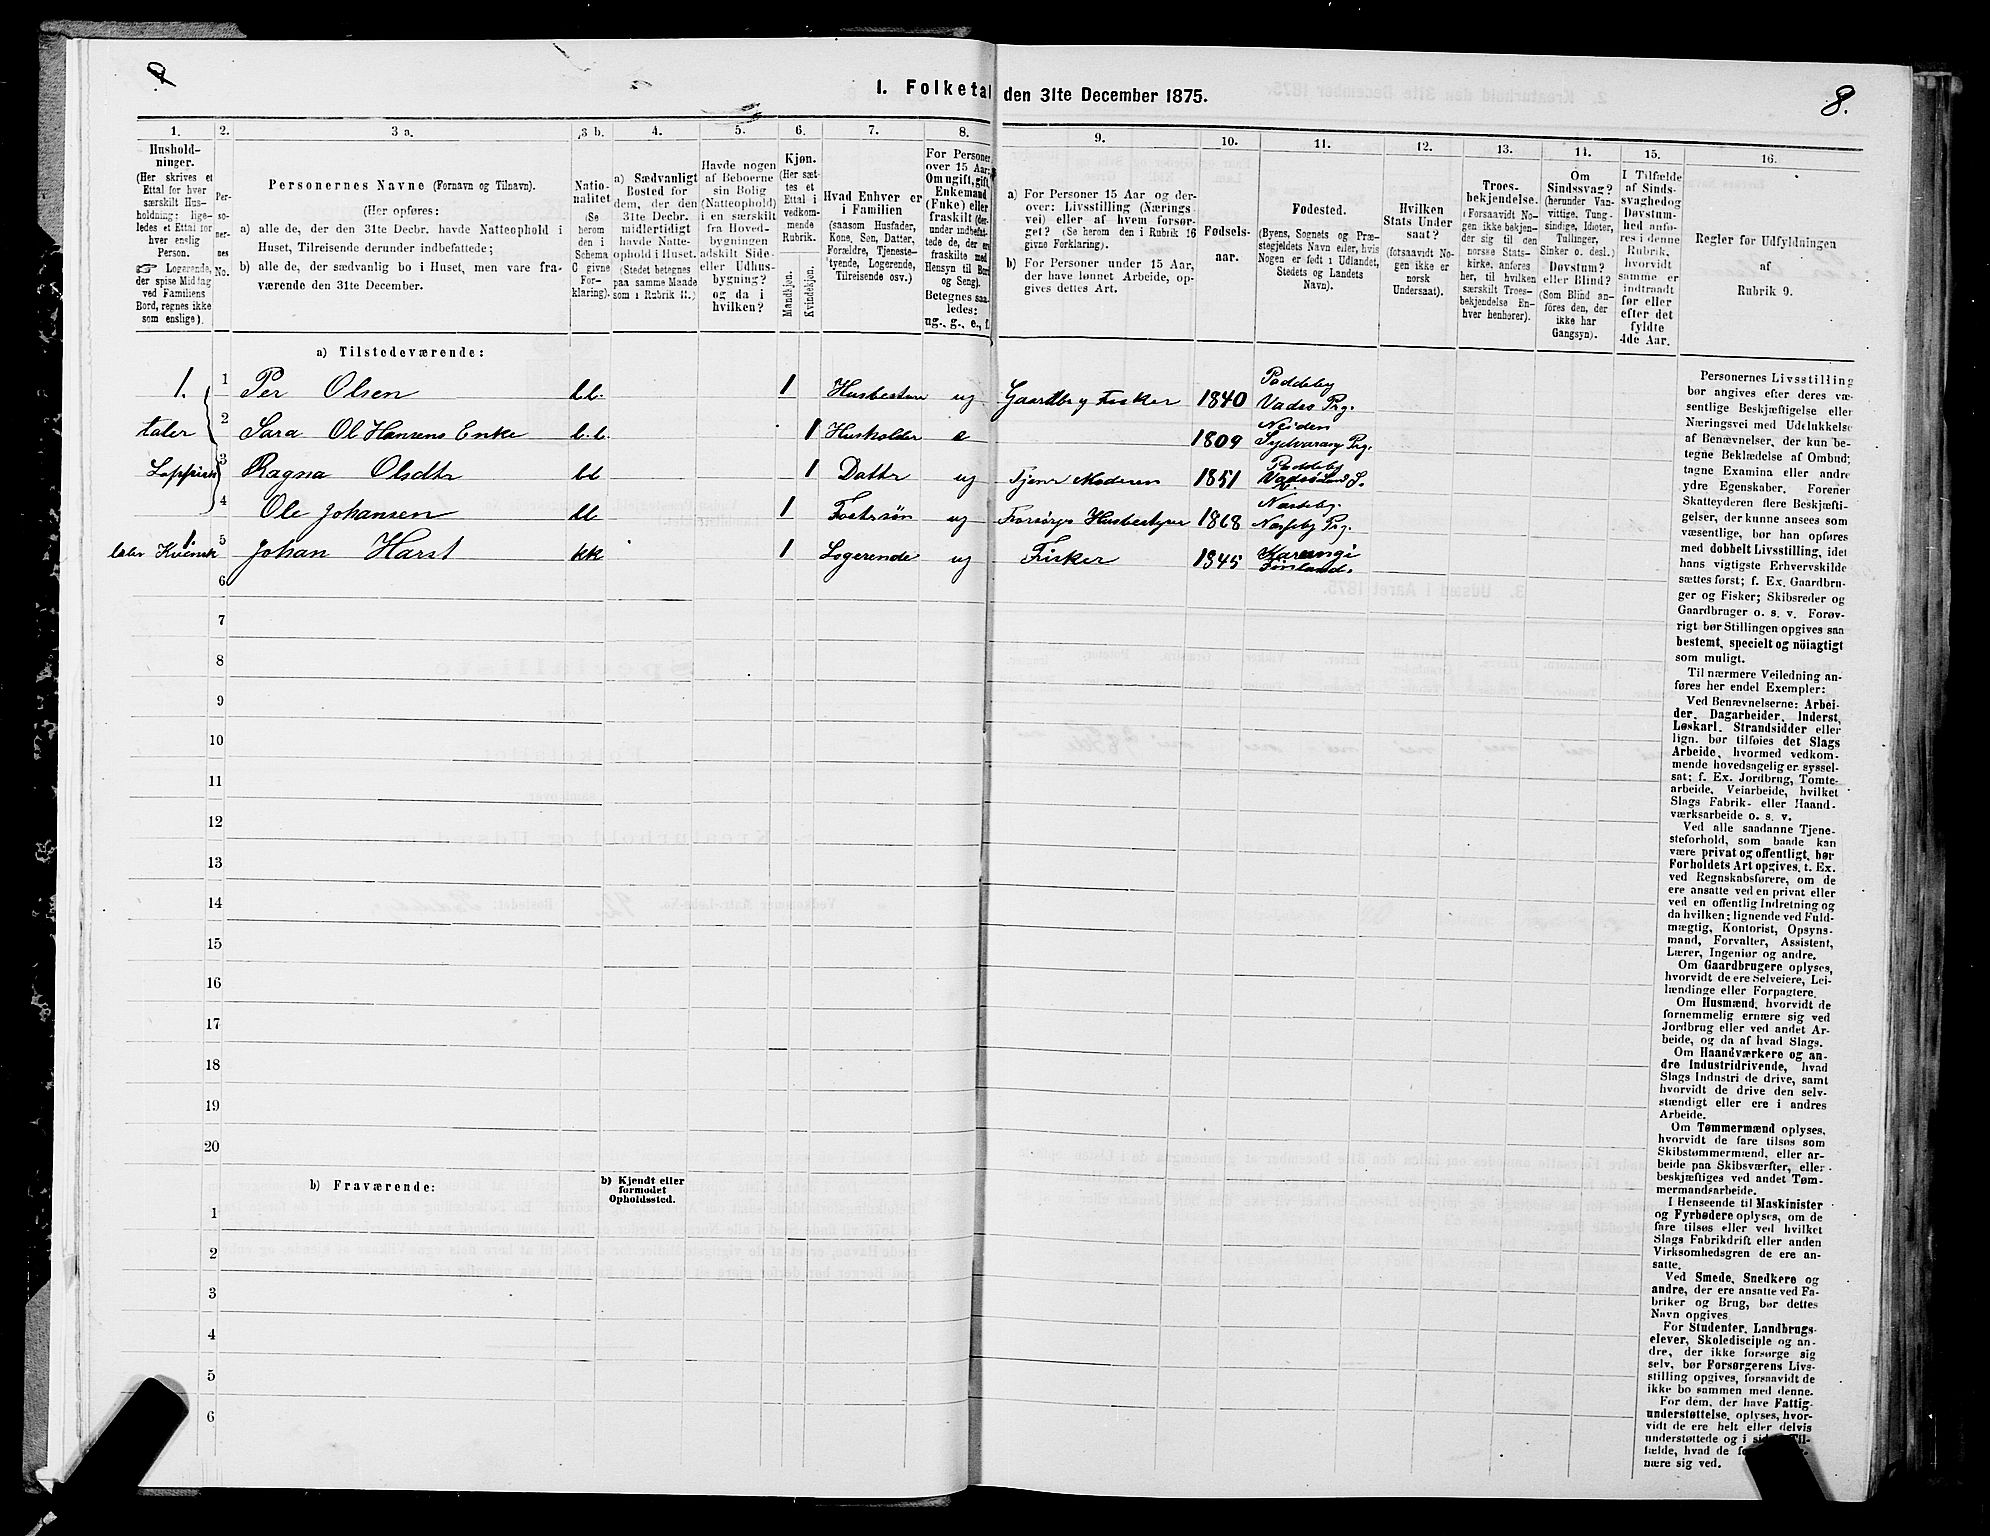 8.
1. Folketal den 31te December 1875.
1.
2.
3 a.
3 b.
4.
5.
6.
7.
8.
9.
10.
11.
12.
13.
14.
15.
16.
Hushold-
ninger.
(Her skrives et
Ettal for hver
særskilt Hus-
holdning; lige-
ledes et Ettal for
hver enslig
Person.
Logerende,
der spise Middag
ved Familiens
Bord, regnes ikke
som enslige).
Per-
so-
ner-
nes
No.
Personernes Navne (Fornavn og Tilnavn).
(Her opføres:
a) alle de, der den 31te Decbr. havde Natteophold i
Huset, Tilreisende derunder indbefattede;
b) alle de, der sædvanlig bo i Huset, men vare fra-
værende den 31te December.
Natio-
nalitet
(Se
herom
den i
Schema
C givne
For-
klaring).
a) Sædvanligt
Bosted for
dem, der den
31te Decbr.
midlertidigt
havde Natte-
ophold i Huset.
(Stedet betegnes
paa samme Maade
som i Rubrik 11.)
Havde nogen
af Beboerne
sin Bolig
(Natteophold)
i en særskilt
fra Hoved-
bygningen
adskilt Side-
eller Udhus-
bygning?
og da i
hvilken?
Kjøn.
(Her sæt-
tes et
Ettal i
vedkom-
mende
Rubrik.
Mandkjøn.
Kvindekjøn.
Hvad Enhver er
i Familien
(saasom Husfader,
Kone, Søn, Datter,
Forældre, Tjeneste-
tyende, Logerende,
Tilreisende osv.)
For Personer
over 15 Aar:
Om ugift, gift,
Enkemand
(Enke) eller
fraskilt (der-
under indbefat-
tede de, der ere
fraskilte med
Hensyn til Bord
og Seng).
Betegnes saa-
ledes:
ug., g., e., f.
a) For Personer 15 Aar og der-
over: Livsstilling (Nærings
vei) eller af hvem forsør-
get? (Se herom den i Rubrik 16
givne Forklaring).
b) For Personer under 15 Aar,
der have lønnet Arbeide, op-
gives dettes Art.
Fødsels-
aar.
Fødested.
(Byens, Sognets og Præ-
stegjeldets Navn eller, hvis
Nogen er født i Udlandet,
Stedets og Landets
Navn).
Hvilken
Stats Under
saat?
(forsaavidt No-
gen ikke er
norsk
Undersaat).
Troes-
bekjendelse.
(Forsaavidt No-
gen ikke bekjen-
der sig til den
norske Stats-
kirke, anføres
her, til hvilken
særskilt Troes-
bekjendelse En-
hver henhører).
Om
Sindssvag?
(herunder Van-
vittige, Tung-
sindige, Idioter,
Tullinger,
Sinker o. desl.)
Døvstum?
eller Blind?
(Som Blind an-
føres den, der
ikke har
Gangsyn).
I Tilfælde
af Sinds-
svaghed og
Døvstum-
hed anfø-
res i denne
Rubrik,
hvorvidt
samme er
indtraadt
før eller
efter det
fyldte
4de Aar.
Regler for Udfyldningen
af
Rubrik 9.
a) Tilstedeværende:
1. 1 Per Olsen b.b. 1 Husbestyrer ug Gaardbr og Fisker 1840 Paddeby Vadsø Prg.
taler 2 Sara Ol Hansens Enke b.b. 1 Husholder e 1809 Neiden Sydvaranger Prg.
Lappisk 3 Ragna Olsdtr bb 1 Datter ug Tjener Moderen 1851 Paddeby Vadsø Land S.
4 Ole Johansen bb 1 Fostersøn ug Forsørges Husbestyrer 1868 Nasseby Nasseby Prg.
1 taler Kvensk 5 Johan Harst kk 1 Logerende ug Fisker 1845 Karungi Finland.
6
7
8
9
10
11
12
13
14
15
16
17
18
19
20
b) Fraværende:
b) Kjendt eller
formodet
Opholdssted.
1
2
3
4
5
6
Personernes Livsstilling
bør angives efter deres væ-
sentlige Beskjæftigelse eller
Næringsvei med Udelukkelse
af Benævnelser, der kun be-
tegne Beklædelse af Ombud,
tagne Examina eller andre
ydre Egenskaber. Forener
Skatteyderen flere Beskjæfti-
gelser, der kunne ansees som
væsentlige, bør han opføres
med dobbelt Livsstilling, idet
hans vigtigste Erhvervskilde
sættes først; f. Ex. Gaardbru-
ger og Fisker; Skibsreder og
Gaardbruger o. s. v. Forøv-
rigt bør Stillingen opgives saa
bestemt, specielt og nöiagtigt
som muligt.
Til nærmere Veiledning an-
føres her endel Exempler:
Ved Benævnelserne: Arbei-
der, Dagarbeider, Inderst,
Løskarl, Strandsidder eller
lign. bør tilføies det Slags
Arbeide, hvormed vedkom-
mende hovedsagelig er syssel-
sat; f. Ex. Jordbrug, Tomte-
arbeide, Veiarbeide, hvilket
Slags Fabrik- eller Haand-
værksarbeide o. s. v.
Ved alle saadanne Tjene-
steforhold, som baade kan
være privat og offentligt, bør
Forholdets Art opgives, t. Ex.
ved Regnskabsførere, om de
ere ansatte ved en privat eller
ved en offentlig Indretning og
da hvilken; lignende ved Fuld-
mægtig, Kontorist, Opsyns-
mand, Forvalter, Assistent,
Lærer, Ingeniør og andre.
Om Gaardbrugere oplyses,
hvorvidt de ere Selveiere, Lei-
lændinge eller Forpagtere.
Om Husmænd, hvorvidt de
fornemmelig ernære sig ved
Jordbrug eller ved andet Ar-
beide, og da af hvad Slags.
Om Haandværkere og an-
dre Industridrivende, hvad
Slags Industri de drive, samt
hvorvidt de drive den selv-
stændigt eller ere i andres
Arbeide.
Om Tømmermænd oplyses,
hvorvidt de fare tilsøs som
Skibstømmermænd, eller ar-
beide paa Skibsværfter, eller
beskjæftiges ved andet Tøm-
mermandsarbeide.
I Henseende til Maskinister
og Fyrbødere oplyses, om de
fare tilsøs eller ved hvilket
Slags Fabrikdrift eller anden
Virksomhedsgren de ere an-
satte.
Ved Smede, Snedkere og
andre, der ere ansatte ved Fa-
briker og Brug, bør dettes
Navn opgives
For Studenter, Landbrugs-
elever, Skoledisciple og an-
dre, der ikke forsørge sig
selv, bør Forsørgerens Livs-
stilling opgives, forsaavidt de
ikke bo sammen med denne.
For dem, der have Fattig-
understøttelse, oplyses, hvor-
vidt de ere helt eller delvis
understøttede og i
fælde, hvad de
nære sig ved.